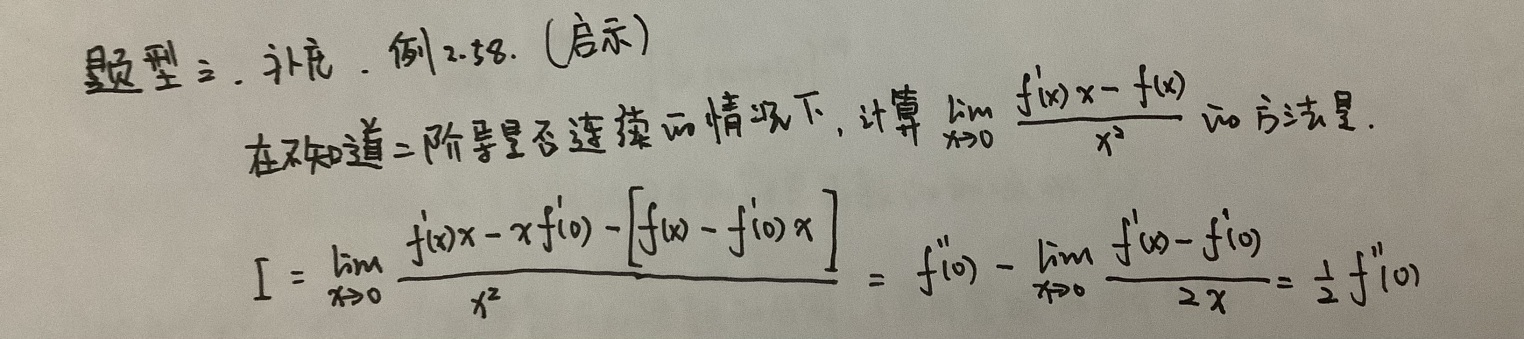 题型三. 补充. 例2.58. (启示)
在不知道二阶导是否连续的情况下, 计算 lim_{x→0} (f'(x)x - f(x))/x² 的方法是.
I = lim_{x→0} (f'(x)x - xf'(0) - [f(x) - f'(0)x])/x² = f''(0) - lim_{x→0} (f'(x) - f'(0))/2x = 1/2 f''(0)